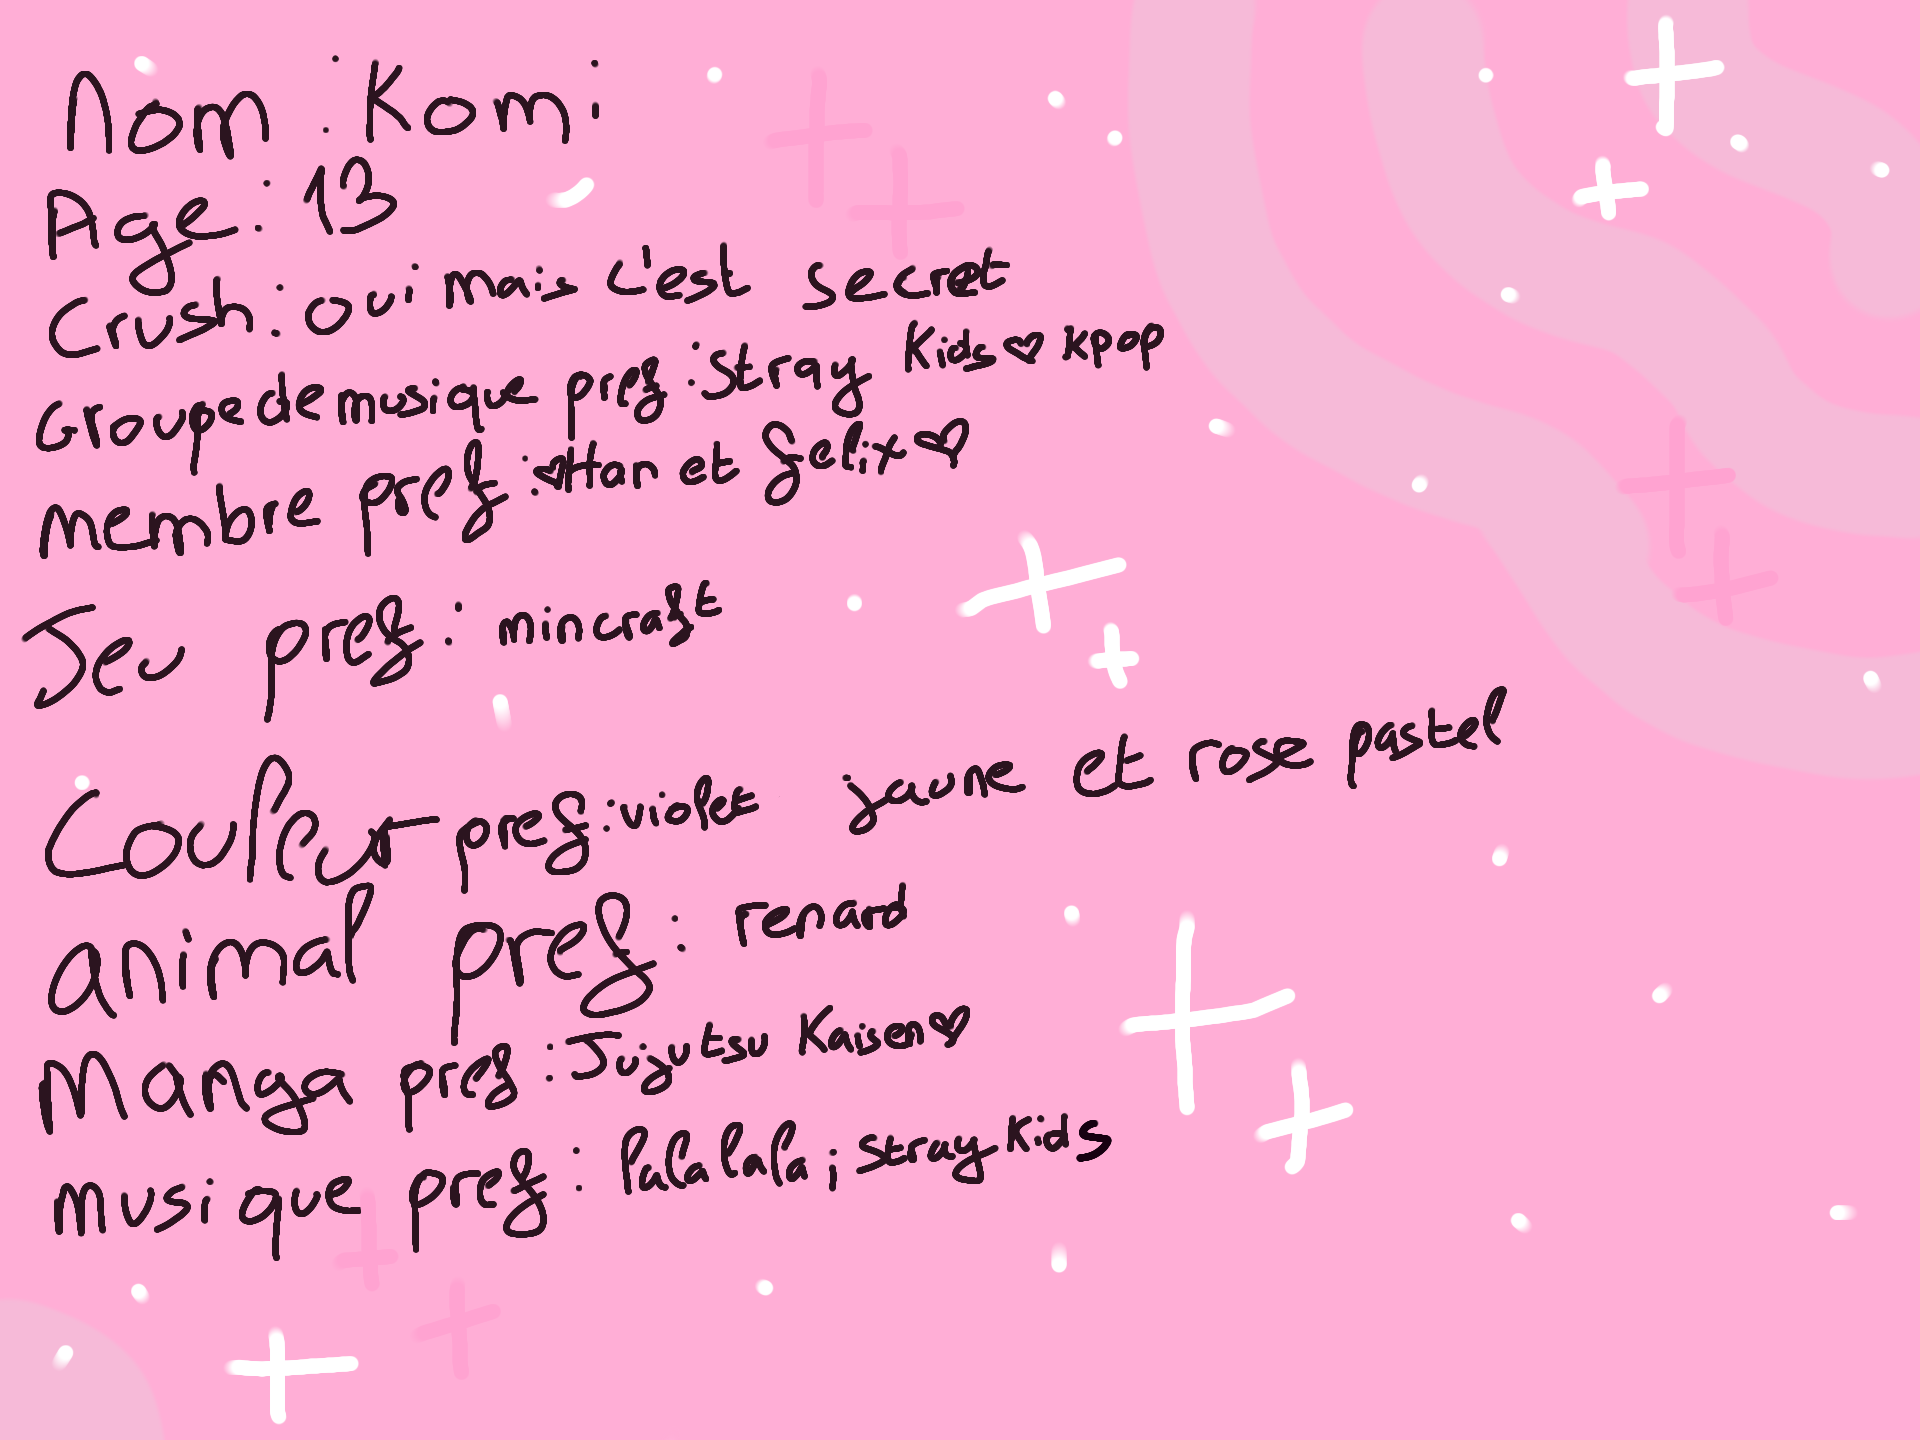 Nom : Komi
Age : 13
Crush : oui mais c'est secret
Groupe de musique pref : Stray Kids ♡ kpop
membre pref : ♡ Han et felix ♡
Jeu pref : mincraft
Couleur pref : violet jaune et rose pastel
animal pref : renard
Manga pref : Jujutsu Kaisen ♡
musique pref : lalalala ; stray Kids